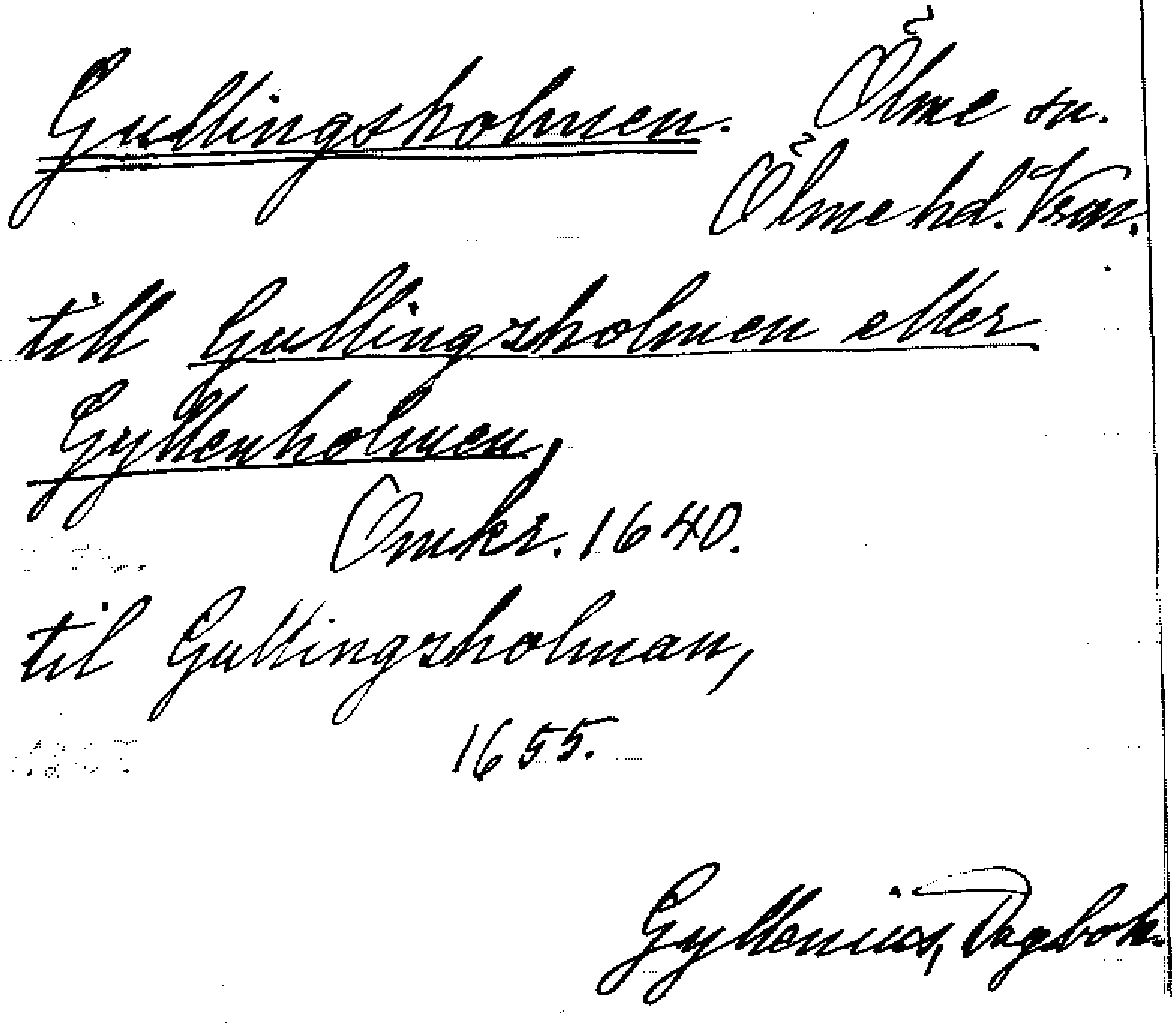 Gullingsholmen. Ölme sn.
Ölme hd. Vrm.
till Gullingsholmen eller
Gyllenholmen,
Omkr. 1640.
til Gullingzholman,
1655.
Gyllenius, Dagbok.